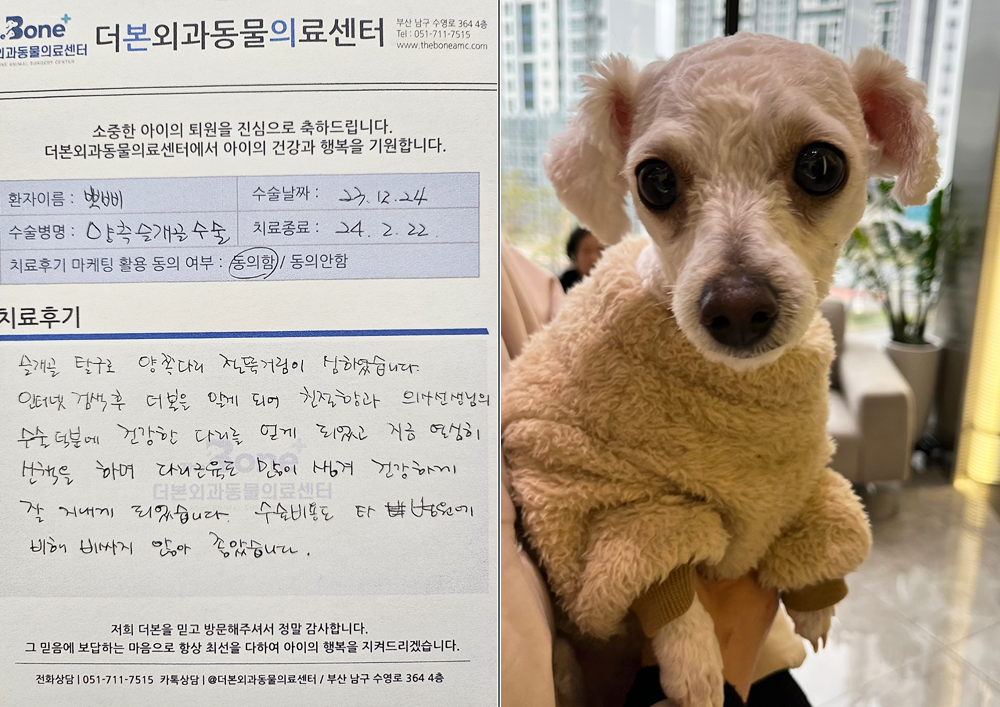 Bone+
외과동물의료센터
더본외과동물의료센터
부산 남구 수영로 364 4층
Tel : 051-711-7515
www.theboneamc.com
소중한 아이의 퇴원을 진심으로 축하드립니다.
더본외과동물의료센터에서 아이의 건강과 행복을 기원합니다.
환자이름 : 뽀삐 수술날짜 : 23.12.24
수술병명 : 양측슬개골수술 치료종료 : 24. 2. 22.
치료후기 마케팅 활용 동의 여부 : 동의함 / 동의안함
치료후기
슬개골 탈구로 양쪽다리 절뚝거림이 심하였습니다.
인터넷 검색후 더본을 알게 되어 친절함과 의사선생님의
수술덕분에 건강한 다리를 얻게 되었고 지금 열심히
산책을 하며 다리근육도 많이 생겨 건강하게
잘 지내게 되었습니다. 수술비용도 타 병원에
비해 비싸지 않아 좋았습니다.
Bone+
더본외과동물의료센터
저희 더본을 믿고 방문해주셔서 정말 감사합니다.
그 믿음에 보답하는 마음으로 항상 최선을 다하여 아이의 행복을 지켜드리겠습니다.
전화상담 | 051-711-7515 카톡상담 | @더본외과동물의료센터 / 부산 남구 수영로 364 4층